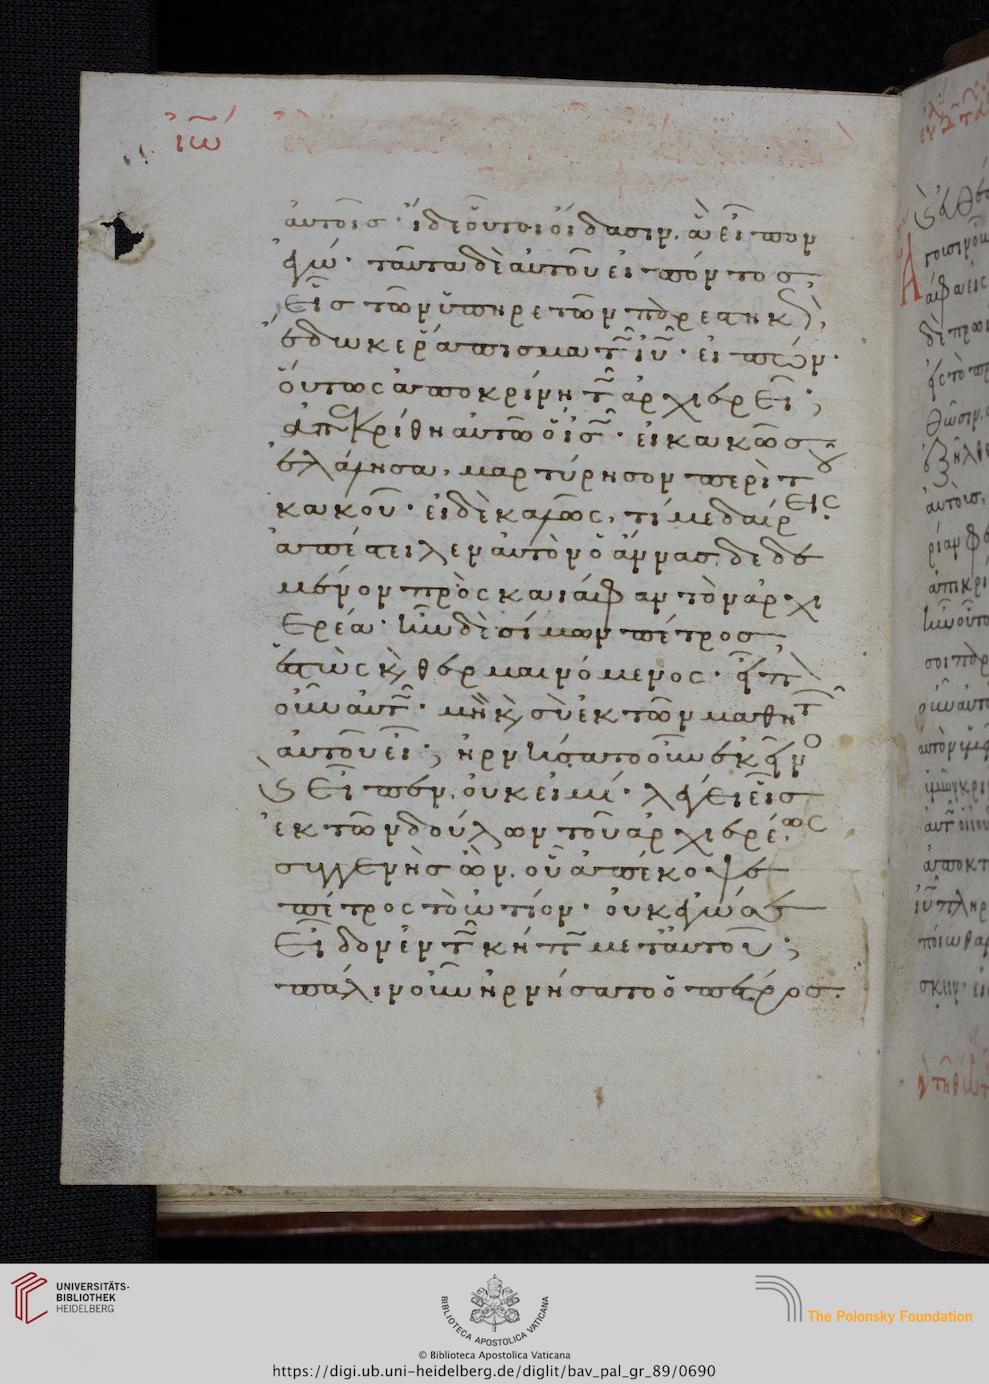 ἰω
αὐτοῖς· ἴδε οὗτοι οἴδασιν, ἃ εἶπον
ἐγώ· ταῦτα δὲ αὐτοῦ εἰπόντος,
εἷς τῶν ὑπηρετῶν παρεστηκὼς,
ἔδωκε ῥάπισμα τῶ ἰῦ· εἰπών·
οὕτως ἀποκρίνη τῶ ἀρχιερεῖ;
ἀπεκρίθη αὐτῶ ὁ ἰς· εἰ κακῶς
ἐλάλησα, μαρτύρησον περὶ τοῦ
κακοῦ· εἰ δὲ καλῶς, τί με δαίρεις·
ἀπέστειλεν αὐτὸν ὁ ἄννας δεδε
μένον πρὸς καιάφαν τὸν ἀρχι
ερέα· ἦν δὲ σίμων πέτρος
ἑστὼς κ θερμαινόμενος· εἶπ
οὖν αὐτῶ· μὴ κ σὺ ἐκ τῶν μαθητῶν
αὐτοῦ εἶ; ἠρνήσατο οὖν ἐκεῖνο
ς κ εἶπεν, οὐκ εἰμί· λέγει εἷς
ἐκ τῶν δούλων τοῦ ἀρχιερέως,
συγγενὴς ὢν, οὗ ἀπέκοψε
πέτρος τὸ ὠτίον· οὐκ ἐγώ σε
εἶδον ἐν τῶ κήπω μετ᾽ αὐτοῦ;
πάλιν οὖν ἠρνήσατο ὁ πέτρος·
UNIVERSITÄTS-
BIBLIOTHEK
HEIDELBERG
BIBLIOTECA APOSTOLICA VATICANA
© Biblioteca Apostolica Vaticana
The Polonsky Foundation
https://digi.ub.uni-heidelberg.de/diglit/bav_pal_gr_89/0690